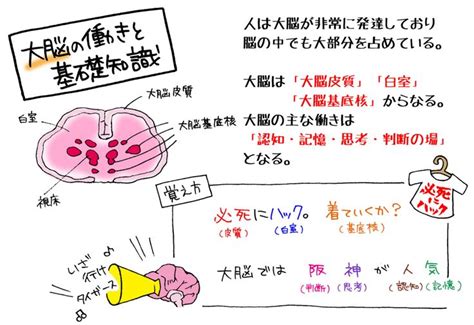 大脳の働きと
基礎知識
人は大脳が非常に発達しており
脳の中でも大部分を占めている。
大脳は「大脳皮質」「白室」
「大脳基底核」からなる。
大脳の主な働きは
「認知・記憶・思考・判断の場」
となる。
大脳皮質
白室
大脳基底核
視床
覚え方
必死にハック。着ていくか?
(皮質)(白室)(基底核)
必死
に
ハック
大脳では 阪神が人気
(判断)(思考)(認知)(記憶)
いざ
行け
タイガース